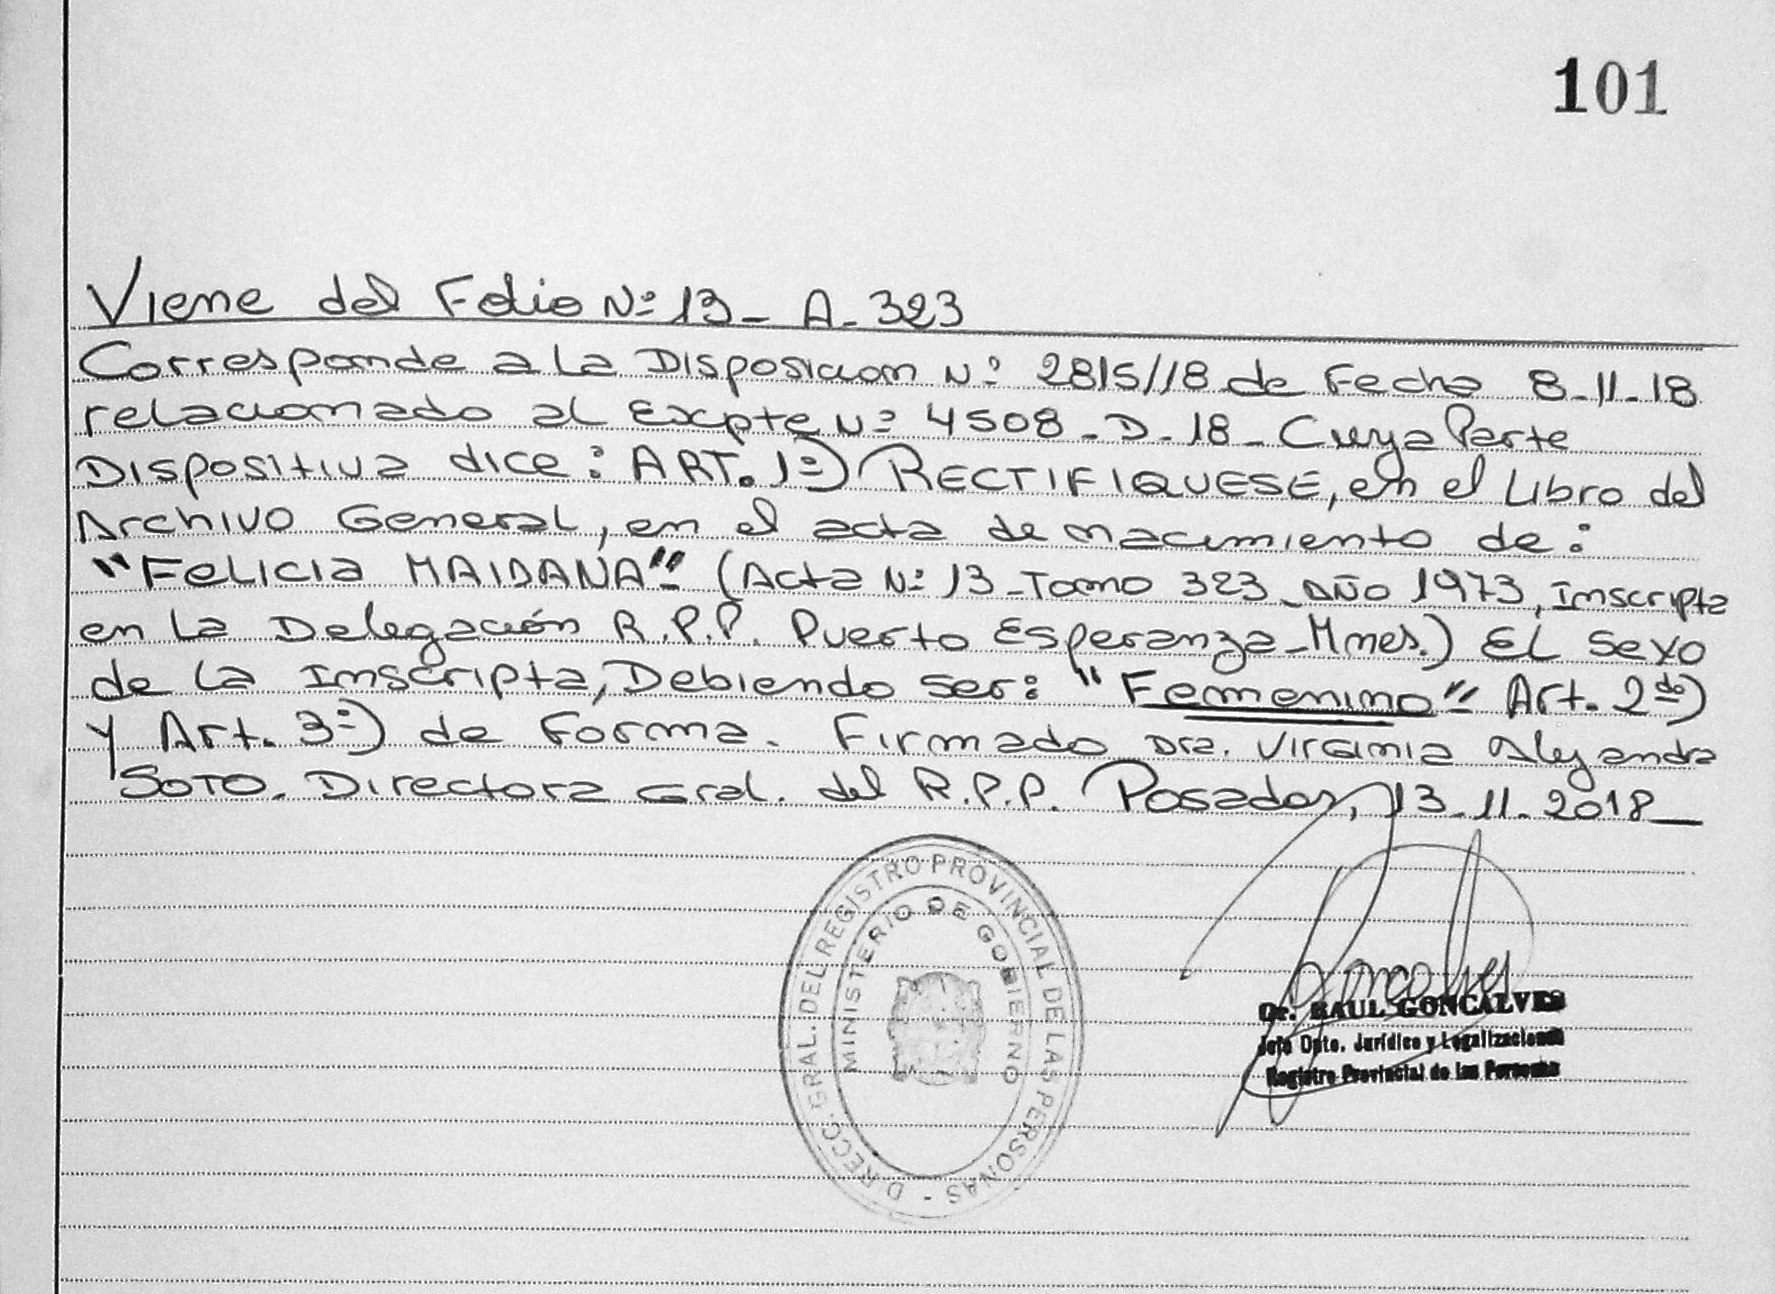 101
Viene del Folio Nº 13- A- 323
Corresponde a la Disposicion Nº 2815//18 de Fecha 8-11-18
relacionado al Expte Nº 4508-D-18- Cuya Parte
Dispositiva dice: ART. 1º) RECTIFIQUESE, en el Libro del
Archivo General, en el acta de nacimiento de:
"Felicia MAIDANA" (Acta Nº 13-Tomo 323-Año 1973, Inscripta
en la Delegación R.P.P. Puerto Esperanza-Mnes.) El sexo
de la Inscripta, Debiendo ser: "Femenino" Art. 2do)
y Art. 3º) de Forma. Firmado Dra. Virginia Alejandra
SOTO. Directora Gral. del R.P.P. Posadas, 13-11-2018
DIRECC. GRAL. DEL REGISTRO PROVINCIAL DE LAS PERSONAS -
MINISTERIO DE GOBIERNO
Goncalves
Dr. RAUL GONCALVES
Jefe Dpto. Jurídico y Legalizaciones
Registro Provincial de las Personas